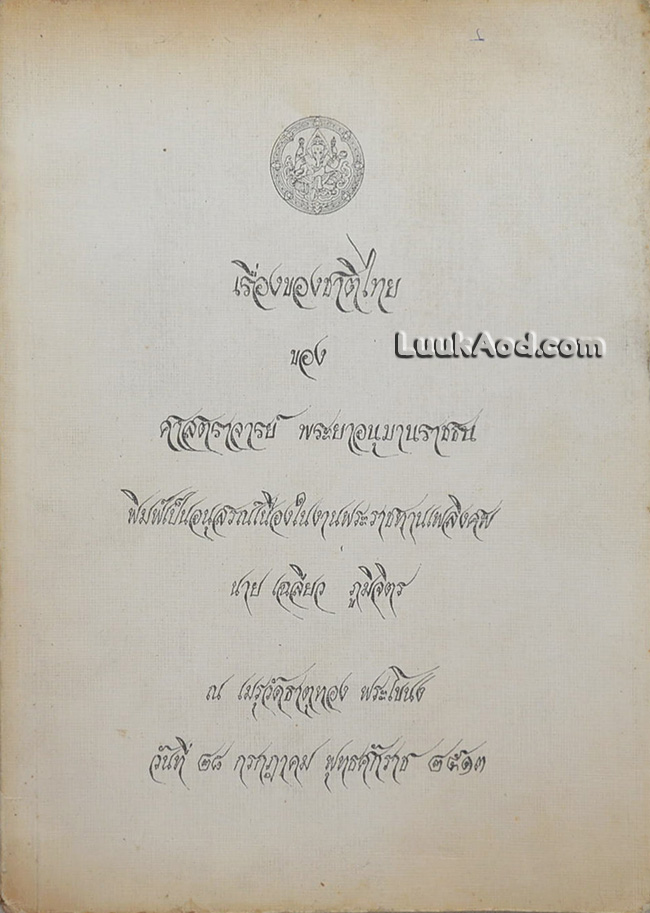 เรื่องของชาติไทย
ของ
LuukAod.com
ศาสตราจารย์ พระยาอนุมานราชธน
พิมพ์เป็นอนุสรณ์เนื่องในงานพระราชทานเพลิงศพ
นาย เฉลียว ภูมิจิตร
ณ เมรุวัดธาตุทอง พระโขนง
วันที่ ๒๘ กรกฎาคม พุทธศักราช ๒๕๑๓